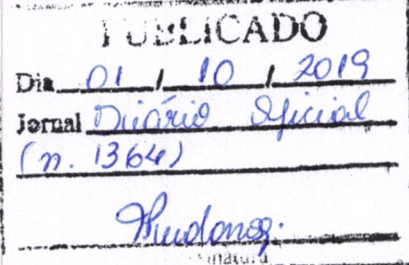 PUBLICADO
Dia 01 / 10 / 2019
Jornal Diário Oficial
(n. 1364)